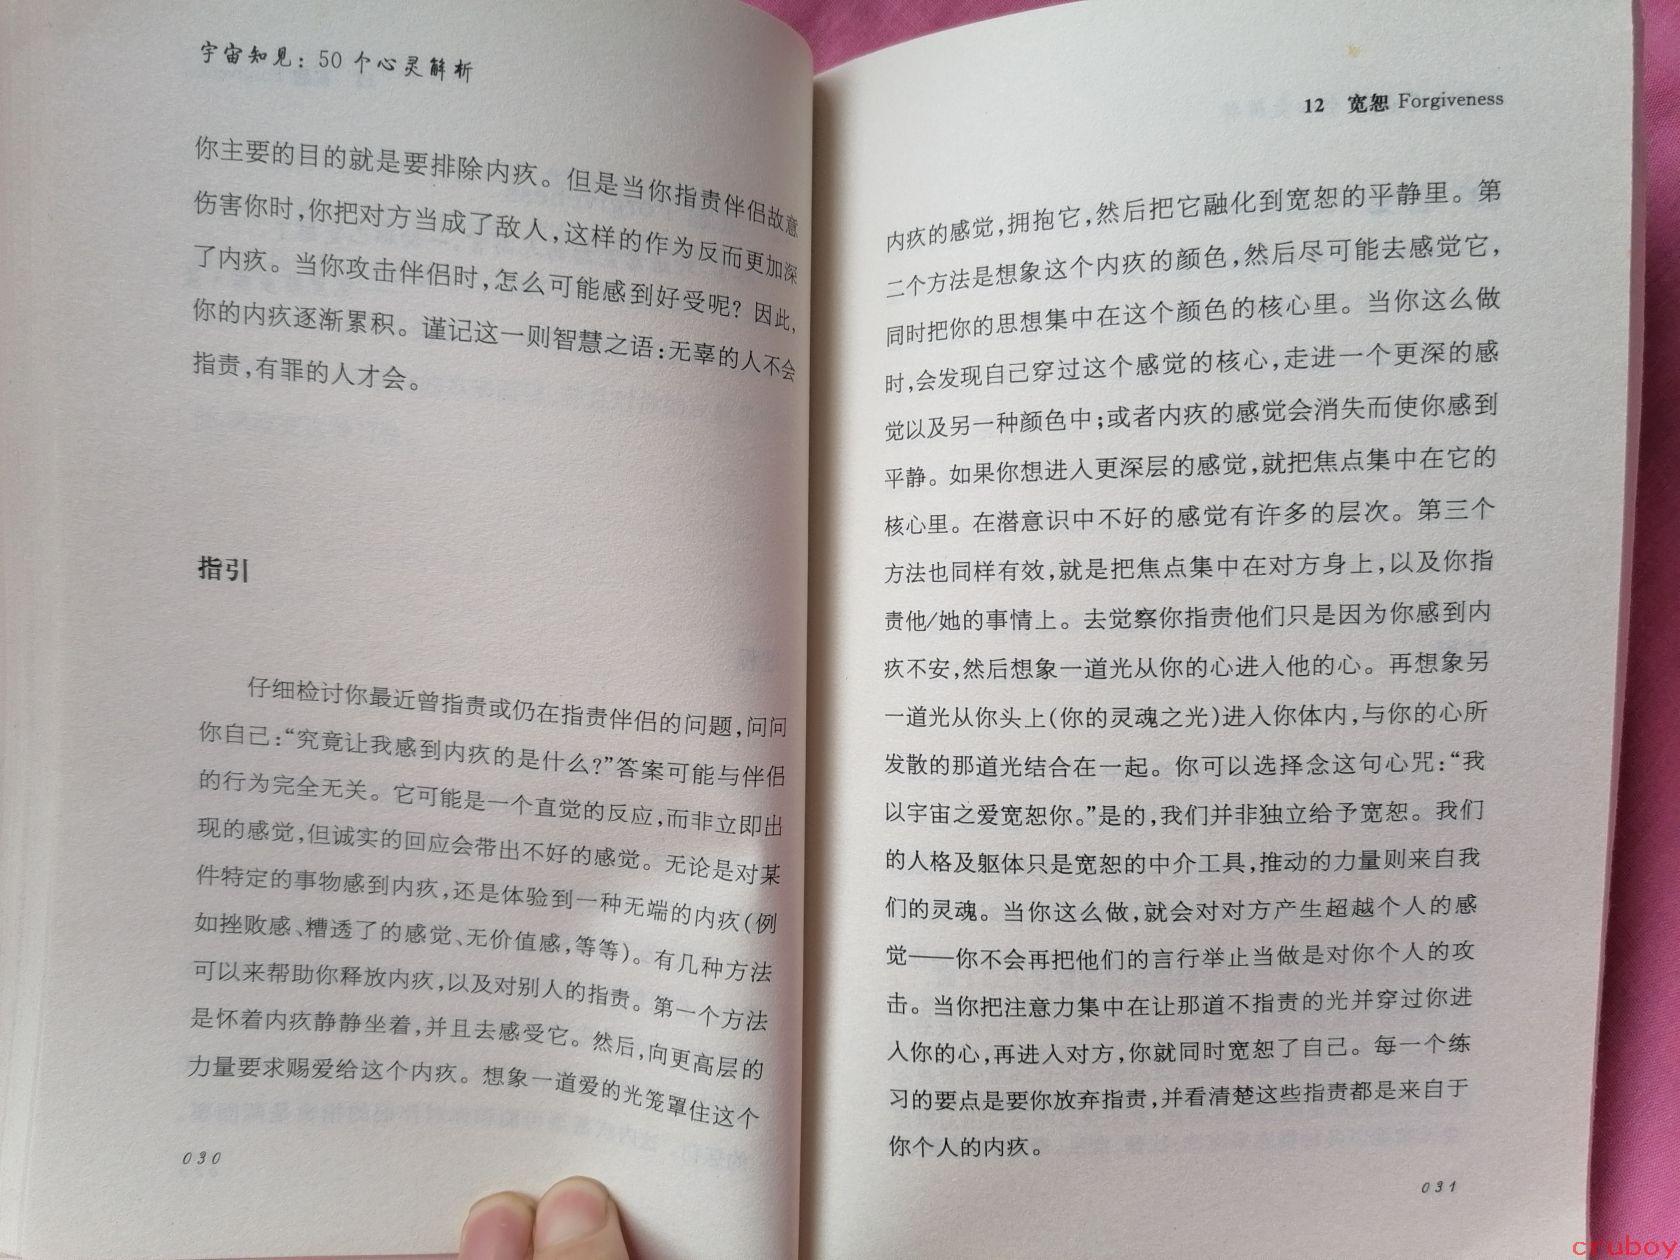 宇宙知见：50个心灵解析
你主要的目的就是要排除内疚。但是当你指责伴侣故意
伤害你时，你把对方当成了敌人，这样的作为反而更加深
了内疚。当你攻击伴侣时，怎么可能感到好受呢？因此，
你的内疚逐渐累积。谨记这一则智慧之语：无辜的人不会
指责，有罪的人才会。
指引
仔细检讨你最近曾指责或仍在指责伴侣的问题，问问
你自己：“究竟让我感到内疚的是什么？”答案可能与伴侣
的行为完全无关。它可能是一个直觉的反应，而非立即出
现的感觉，但诚实的回应会带出不好的感觉。无论是对某
件特定的事物感到内疚，还是体验到一种无端的内疚（例
如挫败感、糟透了的感觉、无价值感，等等）。有几种方法
可以来帮助你释放内疚，以及对别人的指责。第一个方法
是怀着内疚静静坐着，并且去感受它。然后，向更高层的
力量要求赐爱给这个内疚。想象一道爱的光笼罩住这个
030
12 宽恕 Forgiveness
内疚的感觉，拥抱它，然后把它融化到宽恕的平静里。第
二个方法是想象这个内疚的颜色，然后尽可能去感觉它，
同时把你的思想集中在这个颜色的核心里。当你这么做
时，会发现自己穿过这个感觉的核心，走进一个更深的感
觉以及另一种颜色中；或者内疚的感觉会消失而使你感到
平静。如果你想进入更深层的感觉，就把焦点集中在它的
核心里。在潜意识中不好的感觉有许多的层次。第三个
方法也同样有效，就是把焦点集中在对方身上，以及你指
责他/她的事情上。去觉察你指责他们只是因为你感到内
疚不安，然后想象一道光从你的心进入他的心。再想象另
一道光从你头上（你的灵魂之光）进入你体内，与你的心所
发散的那道光结合在一起。你可以选择念这句心咒：“我
以宇宙之爱宽恕你。”是的，我们并非独立给予宽恕。我们
的人格及躯体只是宽恕的中介工具，推动的力量则来自我
们的灵魂。当你这么做，就会对对方产生超越个人的感
觉——你不会再把他们的言行举止当做是对你个人的攻
击。当你把注意力集中在让那道不指责的光并穿过你进
入你的心，再进入对方，你就同时宽恕了自己。每一个练
习的要点是要你放弃指责，并看清楚这些指责都是来自于
你个人的内疚。
031
cruboy